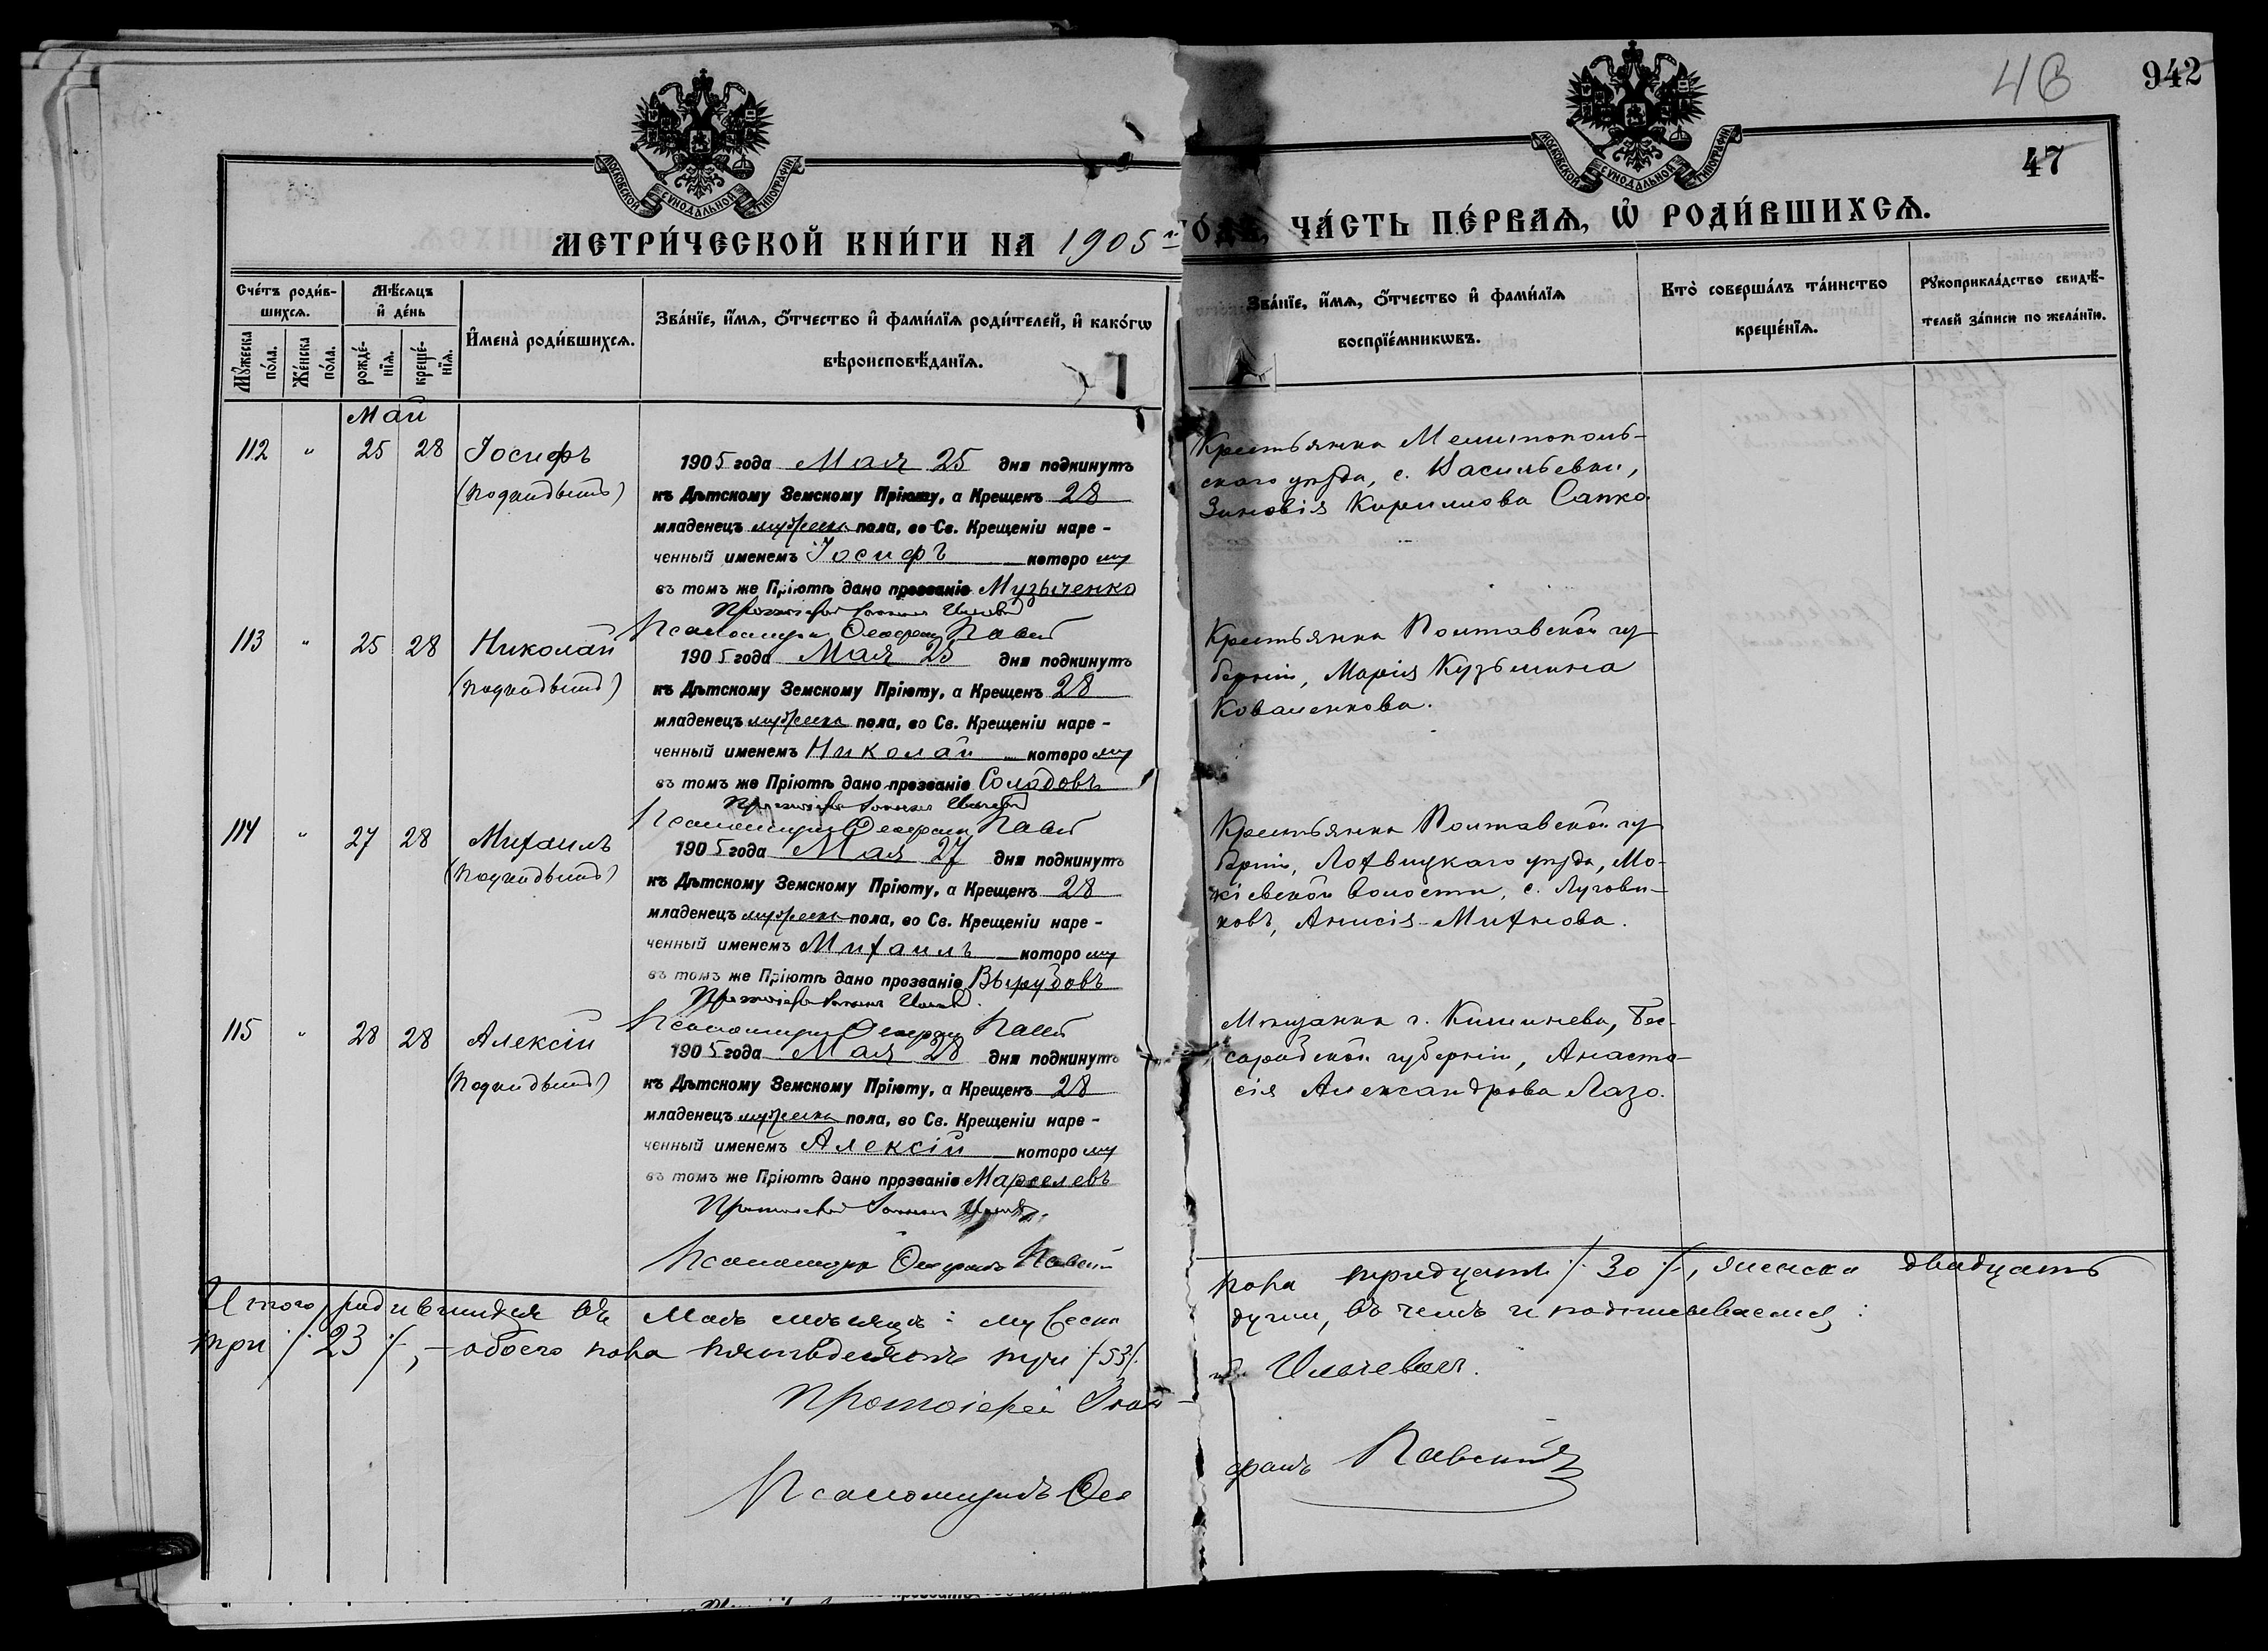 46
942
47
МОСКОВСКОЙ СѴНОДАЛЬНОЙ ТИПОГРАФІИ
МОСКОВСКОЙ СѴНОДАЛЬНОЙ ТИПОГРАФІИ
МЕТРИ́ЧЕСКОЙ КНИ́ГИ НА 1905 ГО́ДЪ, ЧА́СТЬ ПЕ́РВАѦ, Ѽ РОДИ́ВШИХСѦ.
Сче́тъ роди́в-
шихсѧ.
Мꙋжеска по́ла.
Же́нска по́ла.
Мѣ́сѧцъ
и҆ де́нь
рожде́-
нїѧ.
креще́-
нїѧ.
И҆мена̀ роди́вшихсѧ.
Зва́нїе, и҆́мѧ, ѻ҆́тчество и҆ фами́лїѧ роди́телей, и҆ како́гѡ
вѣроисповѣ́данїѧ.
Зва́нїе, и҆́мѧ, ѻ҆́тчество и҆ фами́лїѧ
воспрїе́мникѡвъ.
Кто̀ соверша́лъ та́инство
креще́нїѧ.
Рꙋкоприкла́дство свидѣ́-
телей за́писи по жела́нїю.
Май
112 " 25 28 Іосифъ
(подкидышъ)
1905 года Мая 25 дня подкинутъ
къ Дѣтскому Земскому Пріюту, а Крещенъ 28
младенецъ мужеска пола, во Св. Крещеніи наре-
ченный именемъ Іосифъ которому
въ томъ же Пріютѣ дано прозваніе Музыченко
Крестьянка Мелитополь-
скаго уѣзда, с. Васильевки,
Зиновія Кириллова Сапко
Псаломщикъ
113 " 25 28 Николай
(подкидышъ)
1905 года Мая 25 дня подкинутъ
къ Дѣтскому Земскому Пріюту, а Крещенъ 28
младенецъ мужеска пола, во Св. Крещеніи наре-
ченный именемъ Николай которому
въ томъ же Пріютѣ дано прозваніе Солодовъ
Крестьянка Полтавской гу-
берніи, Марія Кузьмина
Коваленкова.
Псаломщикъ
114 " 27 28 Михаилъ
(подкидышъ)
1905 года Мая 27 дня подкинутъ
къ Дѣтскому Земскому Пріюту, а Крещенъ 28
младенецъ мужеска пола, во Св. Крещеніи наре-
ченный именемъ Михаилъ которому
въ томъ же Пріютѣ дано прозваніе Вырубовъ
Крестьянка Полтавской гу-
берніи, Лохвицкаго уѣзда,
волости, с. Лугови-
ковъ, Анисія Михнова.
Псаломщикъ
115 " 28 28 Алексій
(подкидышъ)
1905 года Мая 28 дня подкинутъ
къ Дѣтскому Земскому Пріюту, а Крещенъ 28
младенецъ мужеска пола, во Св. Крещеніи наре-
ченный именемъ Алексій которому
въ томъ же Пріютѣ дано прозваніе Марселевъ
Мѣщанка г. Кишинева, Бес-
сарабской губерніи, Анаста-
сія Александрова Лазо.
Псаломщикъ Павскій
Итого родившихся въ Маѣ мѣсяцѣ: мужеска пола тридцать /30/, женска двадцать
три /23/, – обоего пола пятьдесятъ три /53/. въ чемъ и подписываемся:
Протоіерей Ильчевичъ.
Псаломщикъ Павскій